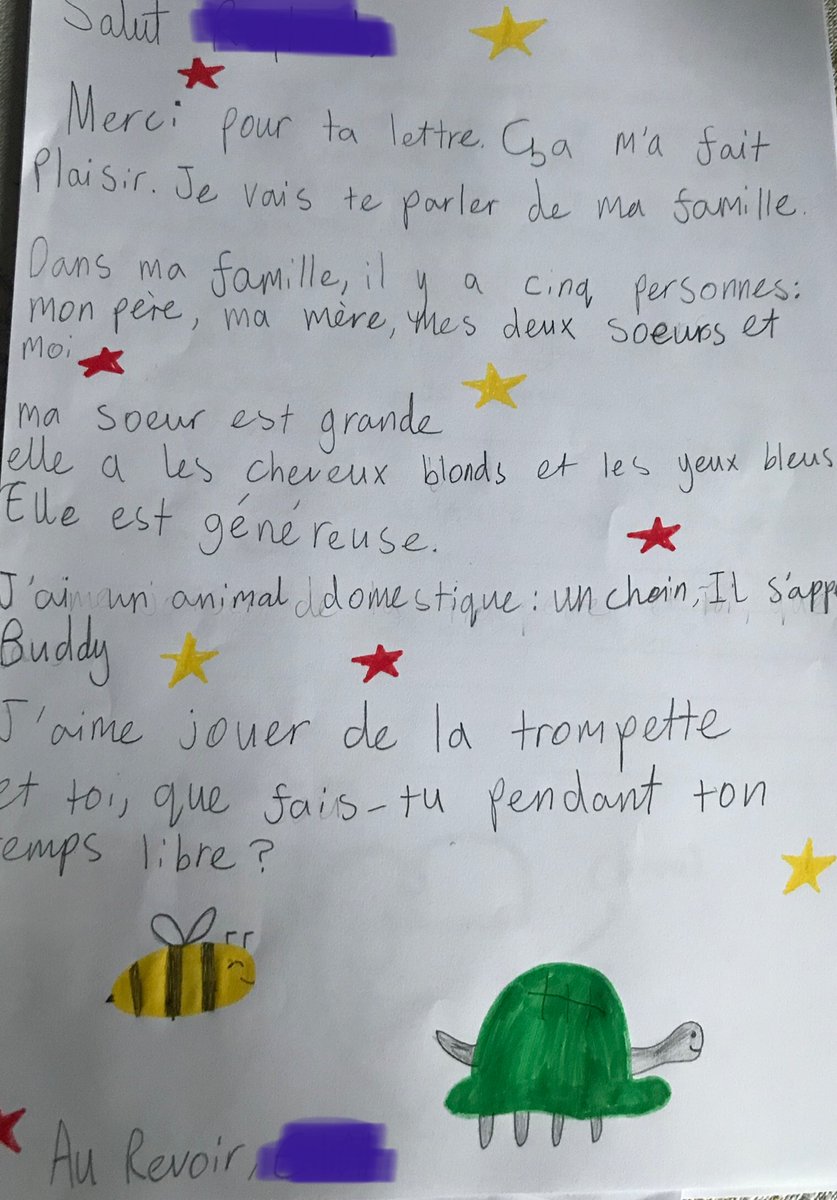 Salut
Merci pour ta lettre. Ça m'a fait
Plaisir. Je vais te parler de ma famille.
Dans ma famille, il y a cinq personnes:
mon père, ma mère, mes deux soeurs et
moi
ma soeur est grande
elle a les cheveux blonds et les yeux bleus
Elle est généreuse.
J'ai un animal domestique: un chein, Il s'app
Buddy
J'aime jouer de la trompette
et toi, que fais-tu pendant ton
temps libre?
Au Revoir,